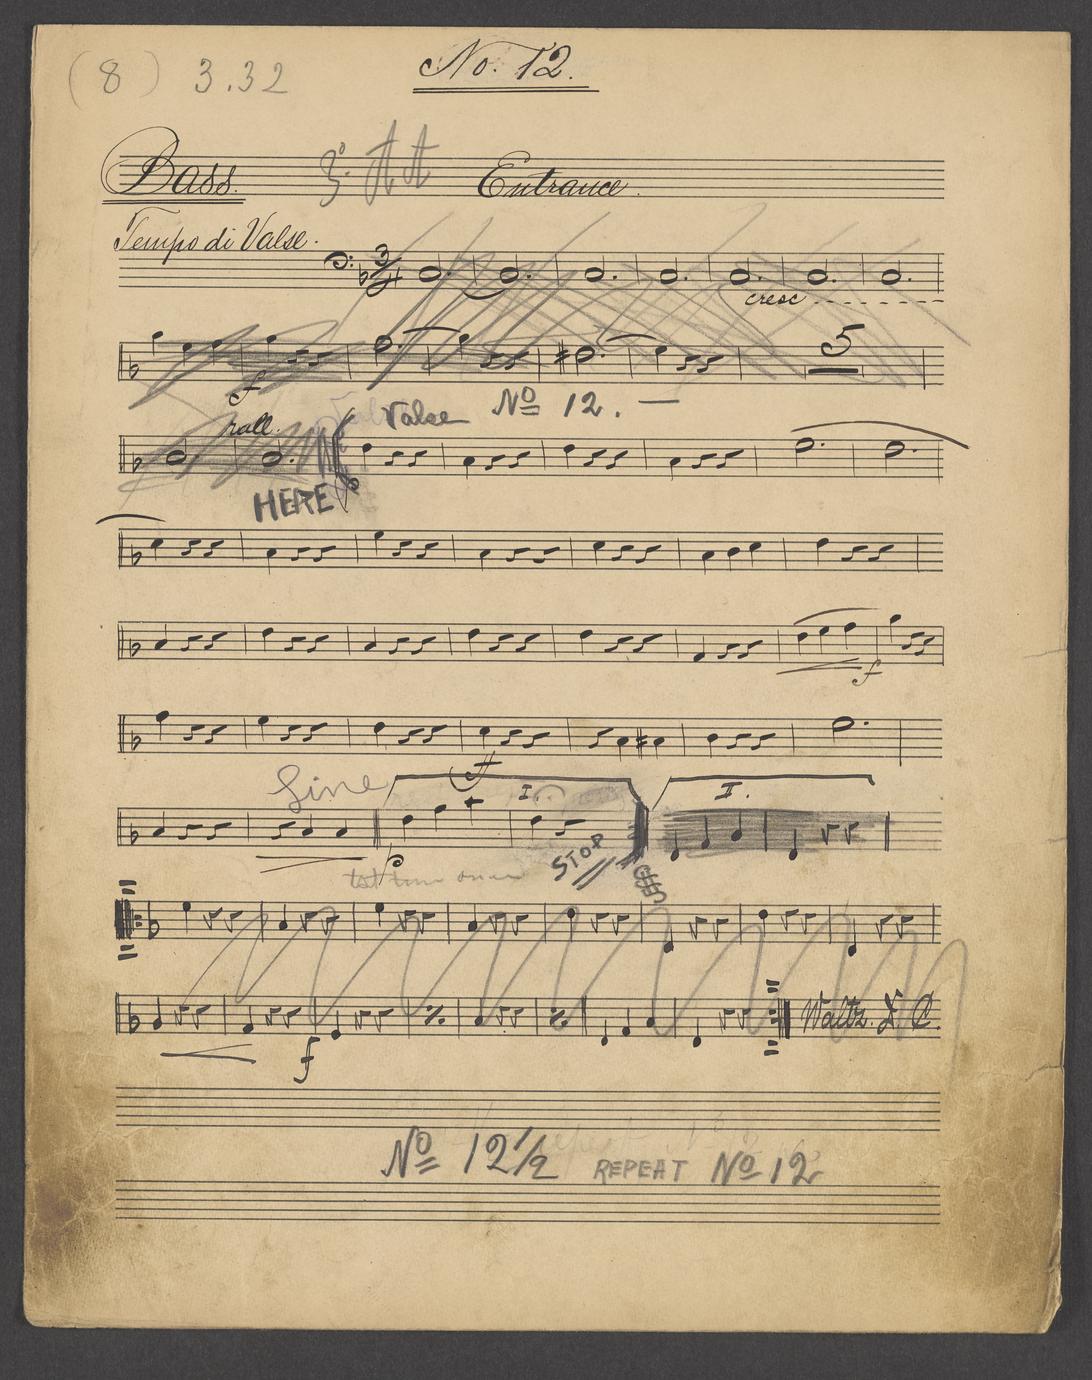 (8) 3.32
No. 12.
Bass. Entrance.
Tempo di Valse.
cresc
5
f
Valse No 12. —
rall.
HERE
f
Fine
I. I.
STOP
f
Waltz. D. C.
No 12½ REPEAT No 12